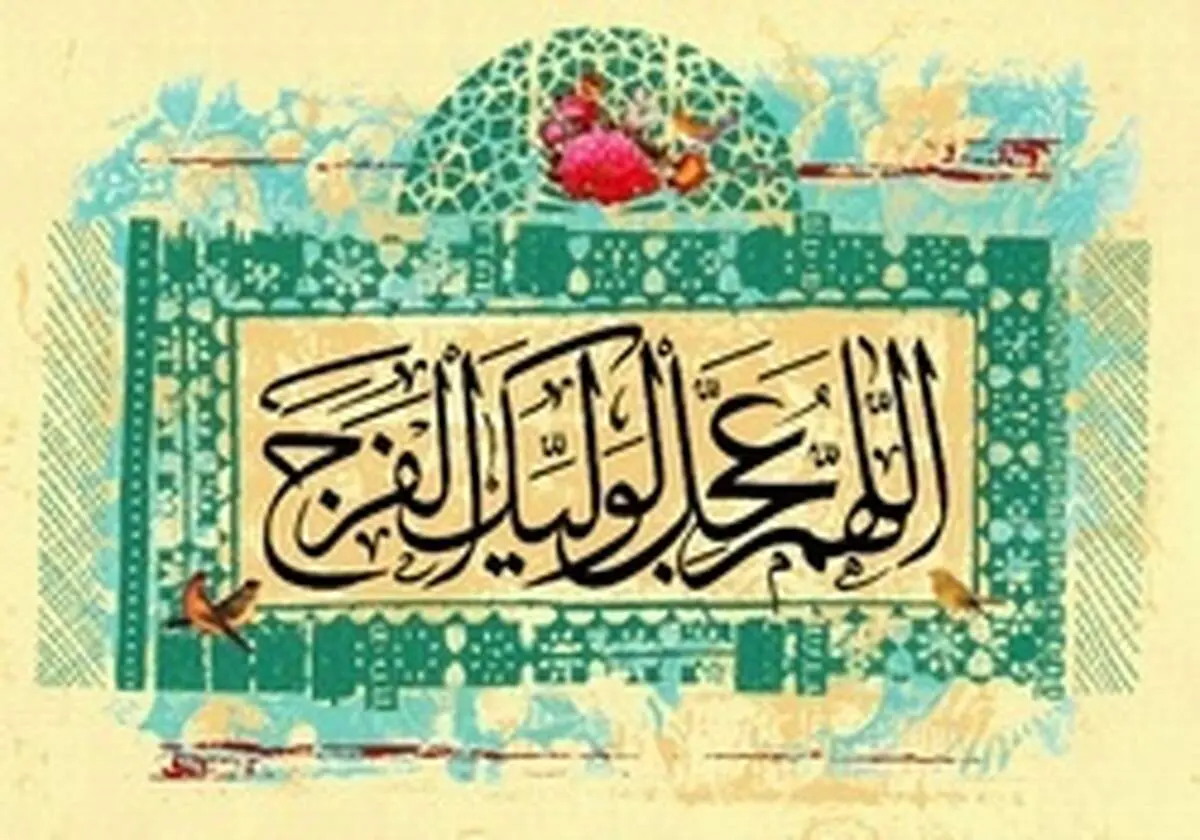 اللّٰهُمَّ عَجِّل لِوَلِیِّکَ الْفَرَج